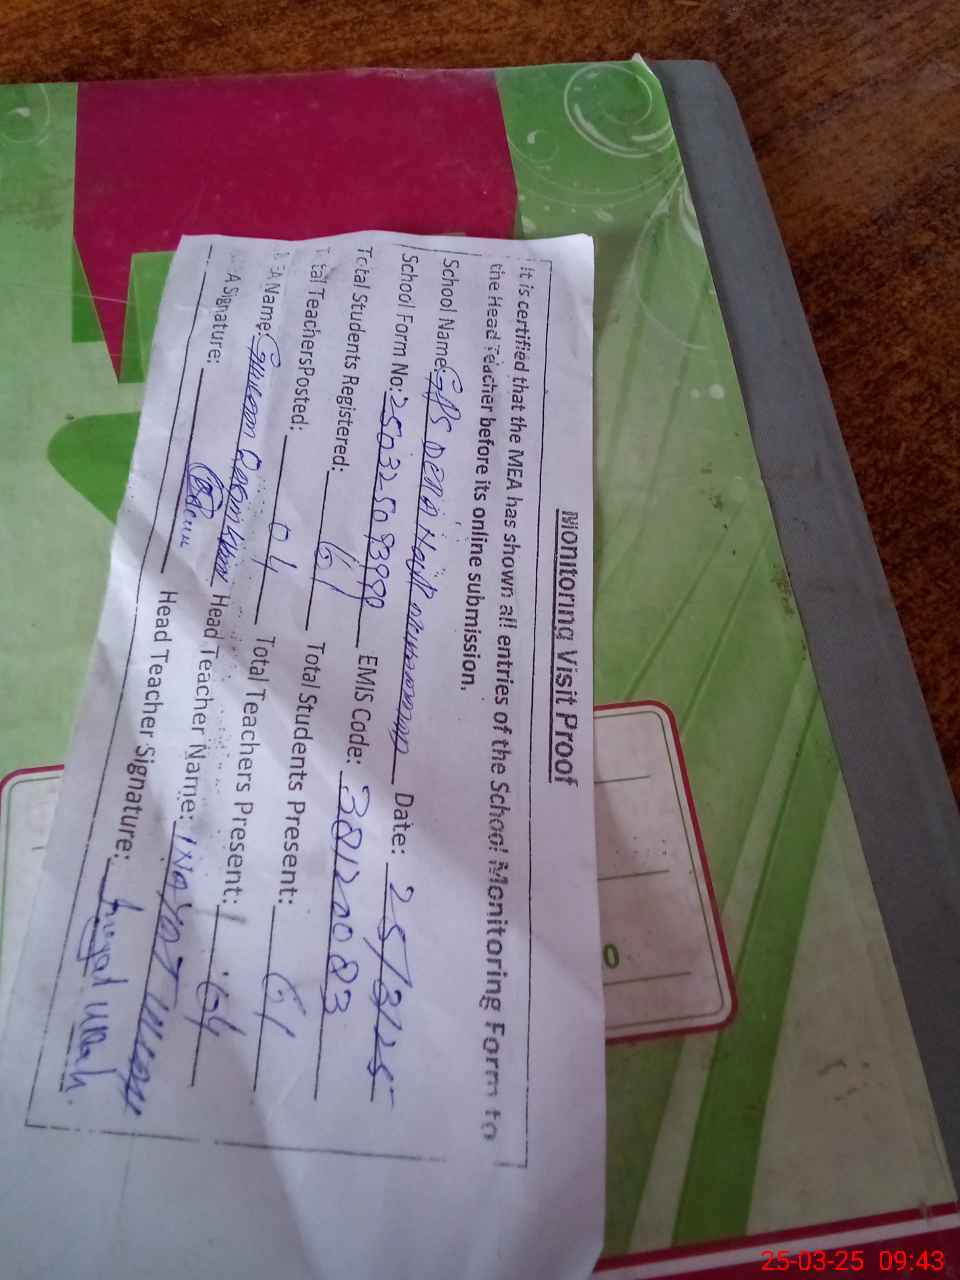 Monitoring Visit Proof
It is certified that the MEA has shown all entries of the School Monitoring Form to
the Head Teacher before its online submission.
School Name: GPS Dera Date: 25/3/25
School Form No: EMIS Code: 38120083
Total Students Registered: 61 Total Students Present: 61
tal Teachers Posted: 04 Total Teachers Present: 04
EA Name: Head Teacher Name: Inayat Ullah
A Signature: Head Teacher Signature: Inayat Ullah.
25-03-25 09:43